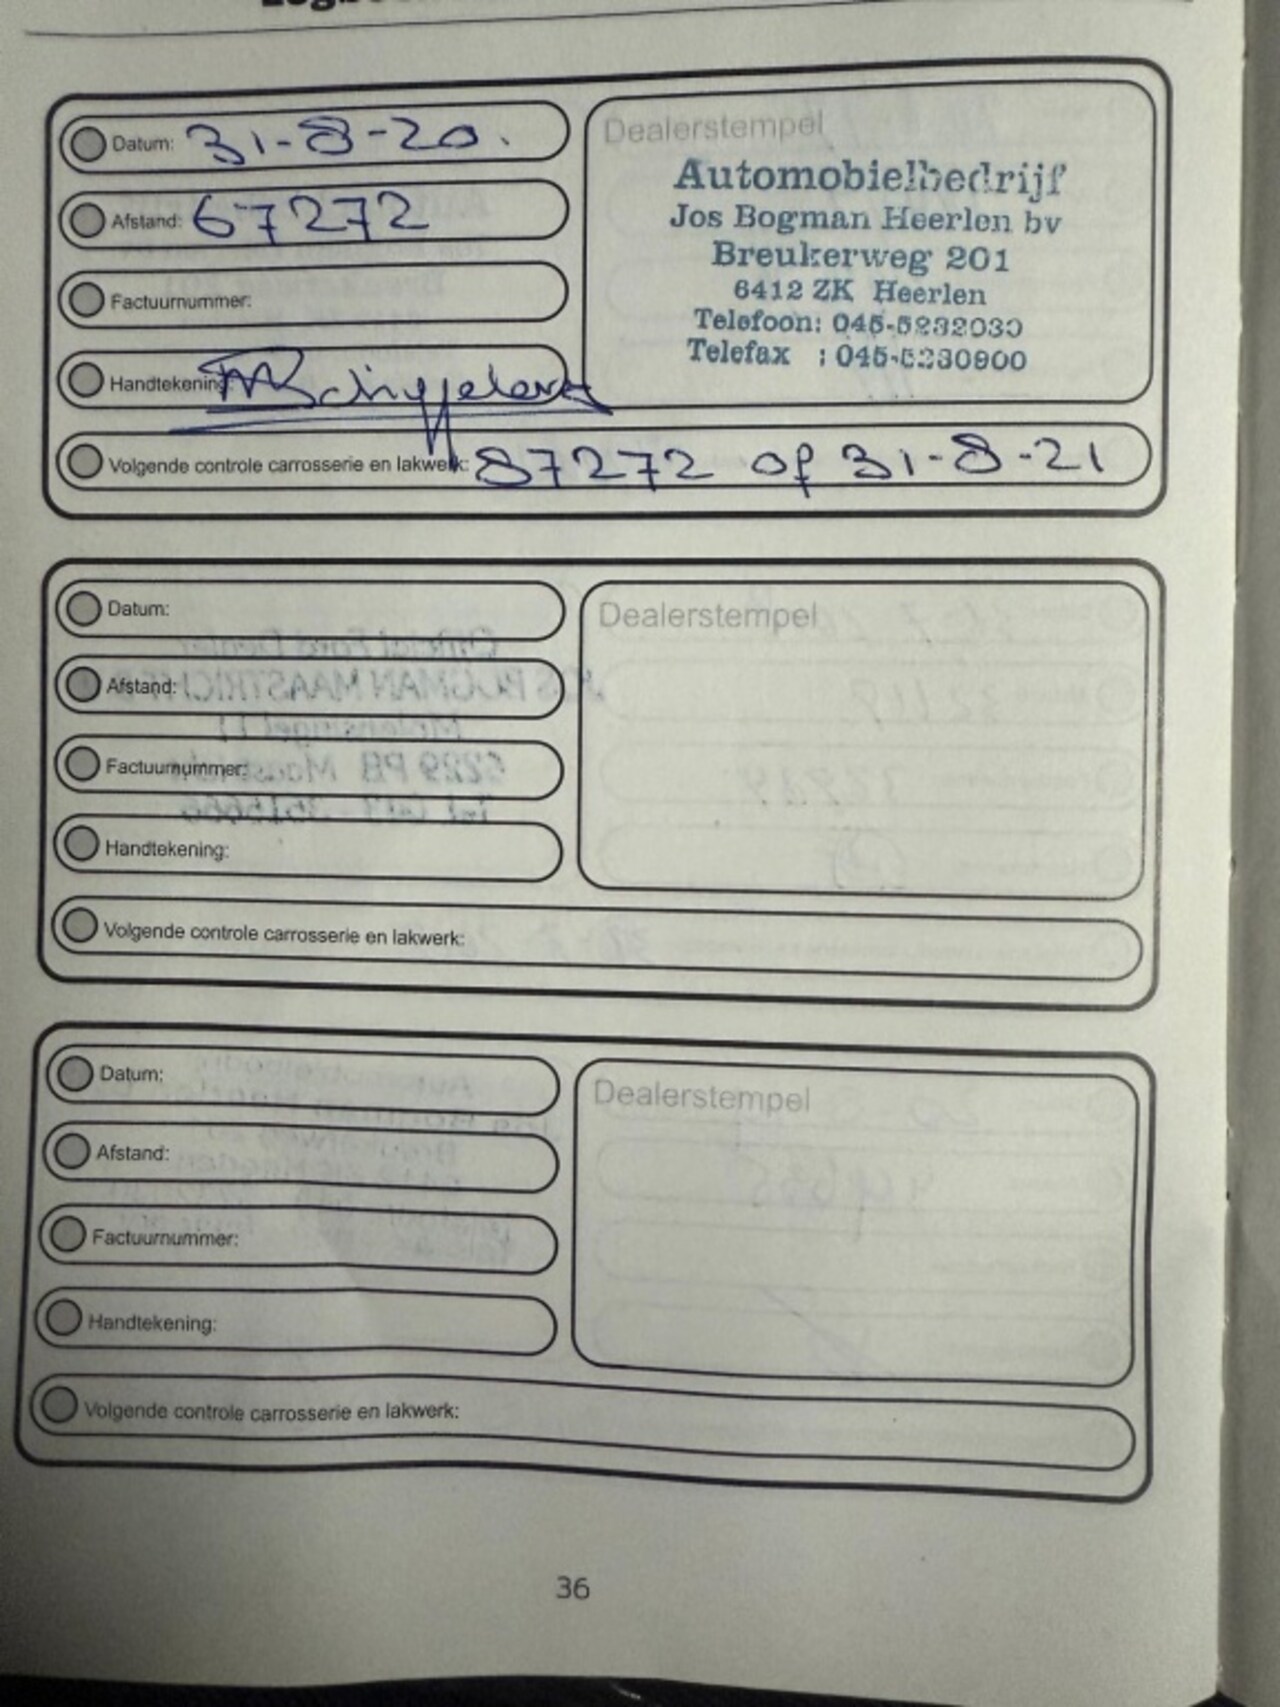 Datum: 31-8-20.
Afstand: 67272
Factuurnummer:
Handtekening:
Volgende controle carrosserie en lakwerk: 87272 of 31-8-21
Dealerstempel
Automobielbedrijf
Jos Bogman Heerlen bv
Breukerweg 201
6412 ZK Heerlen
Telefoon: 045-5232030
Telefax : 045-5230900
Datum:
Afstand:
Factuurnummer:
Handtekening:
Volgende controle carrosserie en lakwerk:
Dealerstempel
Datum:
Afstand:
Factuurnummer:
Handtekening:
Volgende controle carrosserie en lakwerk:
Dealerstempel
36